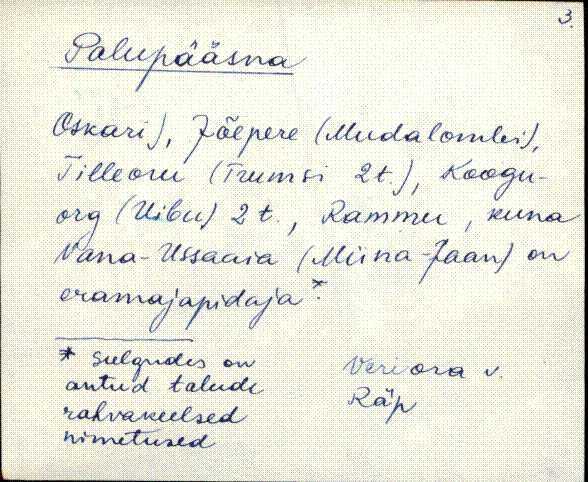 3.
Palupääsna
Oskari), Jõepere (Mudalombi),
Tilleoru (Trumsi 2t.), Koogu-
org (Uibu) 2 t., Rammu, kuna
Vana-Ussaaia (Miina-Jaan) on
eramajapidaja*.
* Sulgudes on
antud talude
rahvakeelsed
nimetused
Veriora v.
Räp